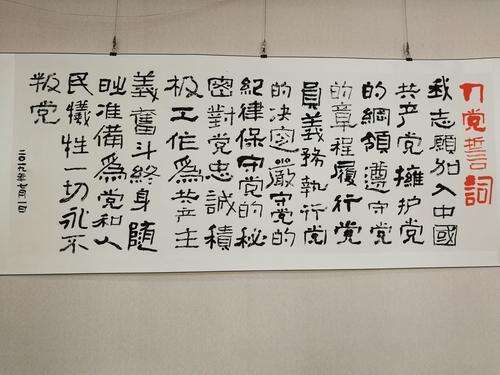 入党誓詞
我志願加入中國
共产党擁护党
的綱領遵守党
的章程履行党
員義務執行党
的决定嚴守党的
紀律保守党的秘
密對党忠誠積
极工作為共产主
義奮斗終身随
时准備為党和人
民犧牲一切永不
叛党
二〇一九年七月一日